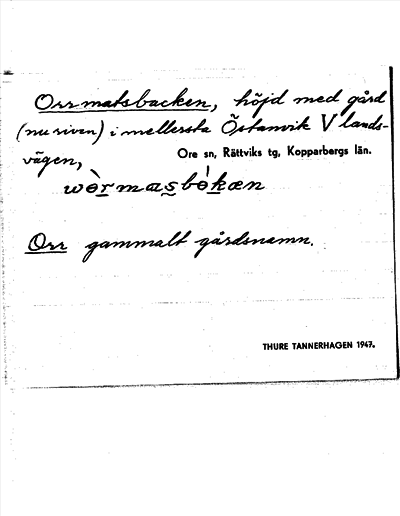 Orrmatsbacken, höjd med gård
(nu riven) i mellersta Östanvik V lands-
vägen,
Ore sn, Rättviks tg, Kopparbergs län.
wèrmasbékæn
Orr gammalt gårdsnamn.
THURE TANNERHAGEN 1947.